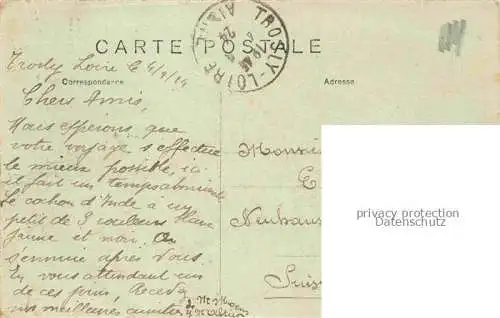 CARTE POSTALE
TROSLY-LOIRE
AISNE
Trosly Loire le 4/9/24
Correspondance
Adresse
Chers Amis,
Nous espérons que
votre voyage s'effectue
le mieux possible, ici
il fait un temps abominable
Le cochon d'Inde a un
petit de 3 couleurs blanc
jaune et noir. On
s'ennuie après Vous.
En vous attendant un
de ces jours, Recevez
nos meilleures amitiés
Monsieur
E
Neuhaus
Suis
privacy protection
Datenschutz